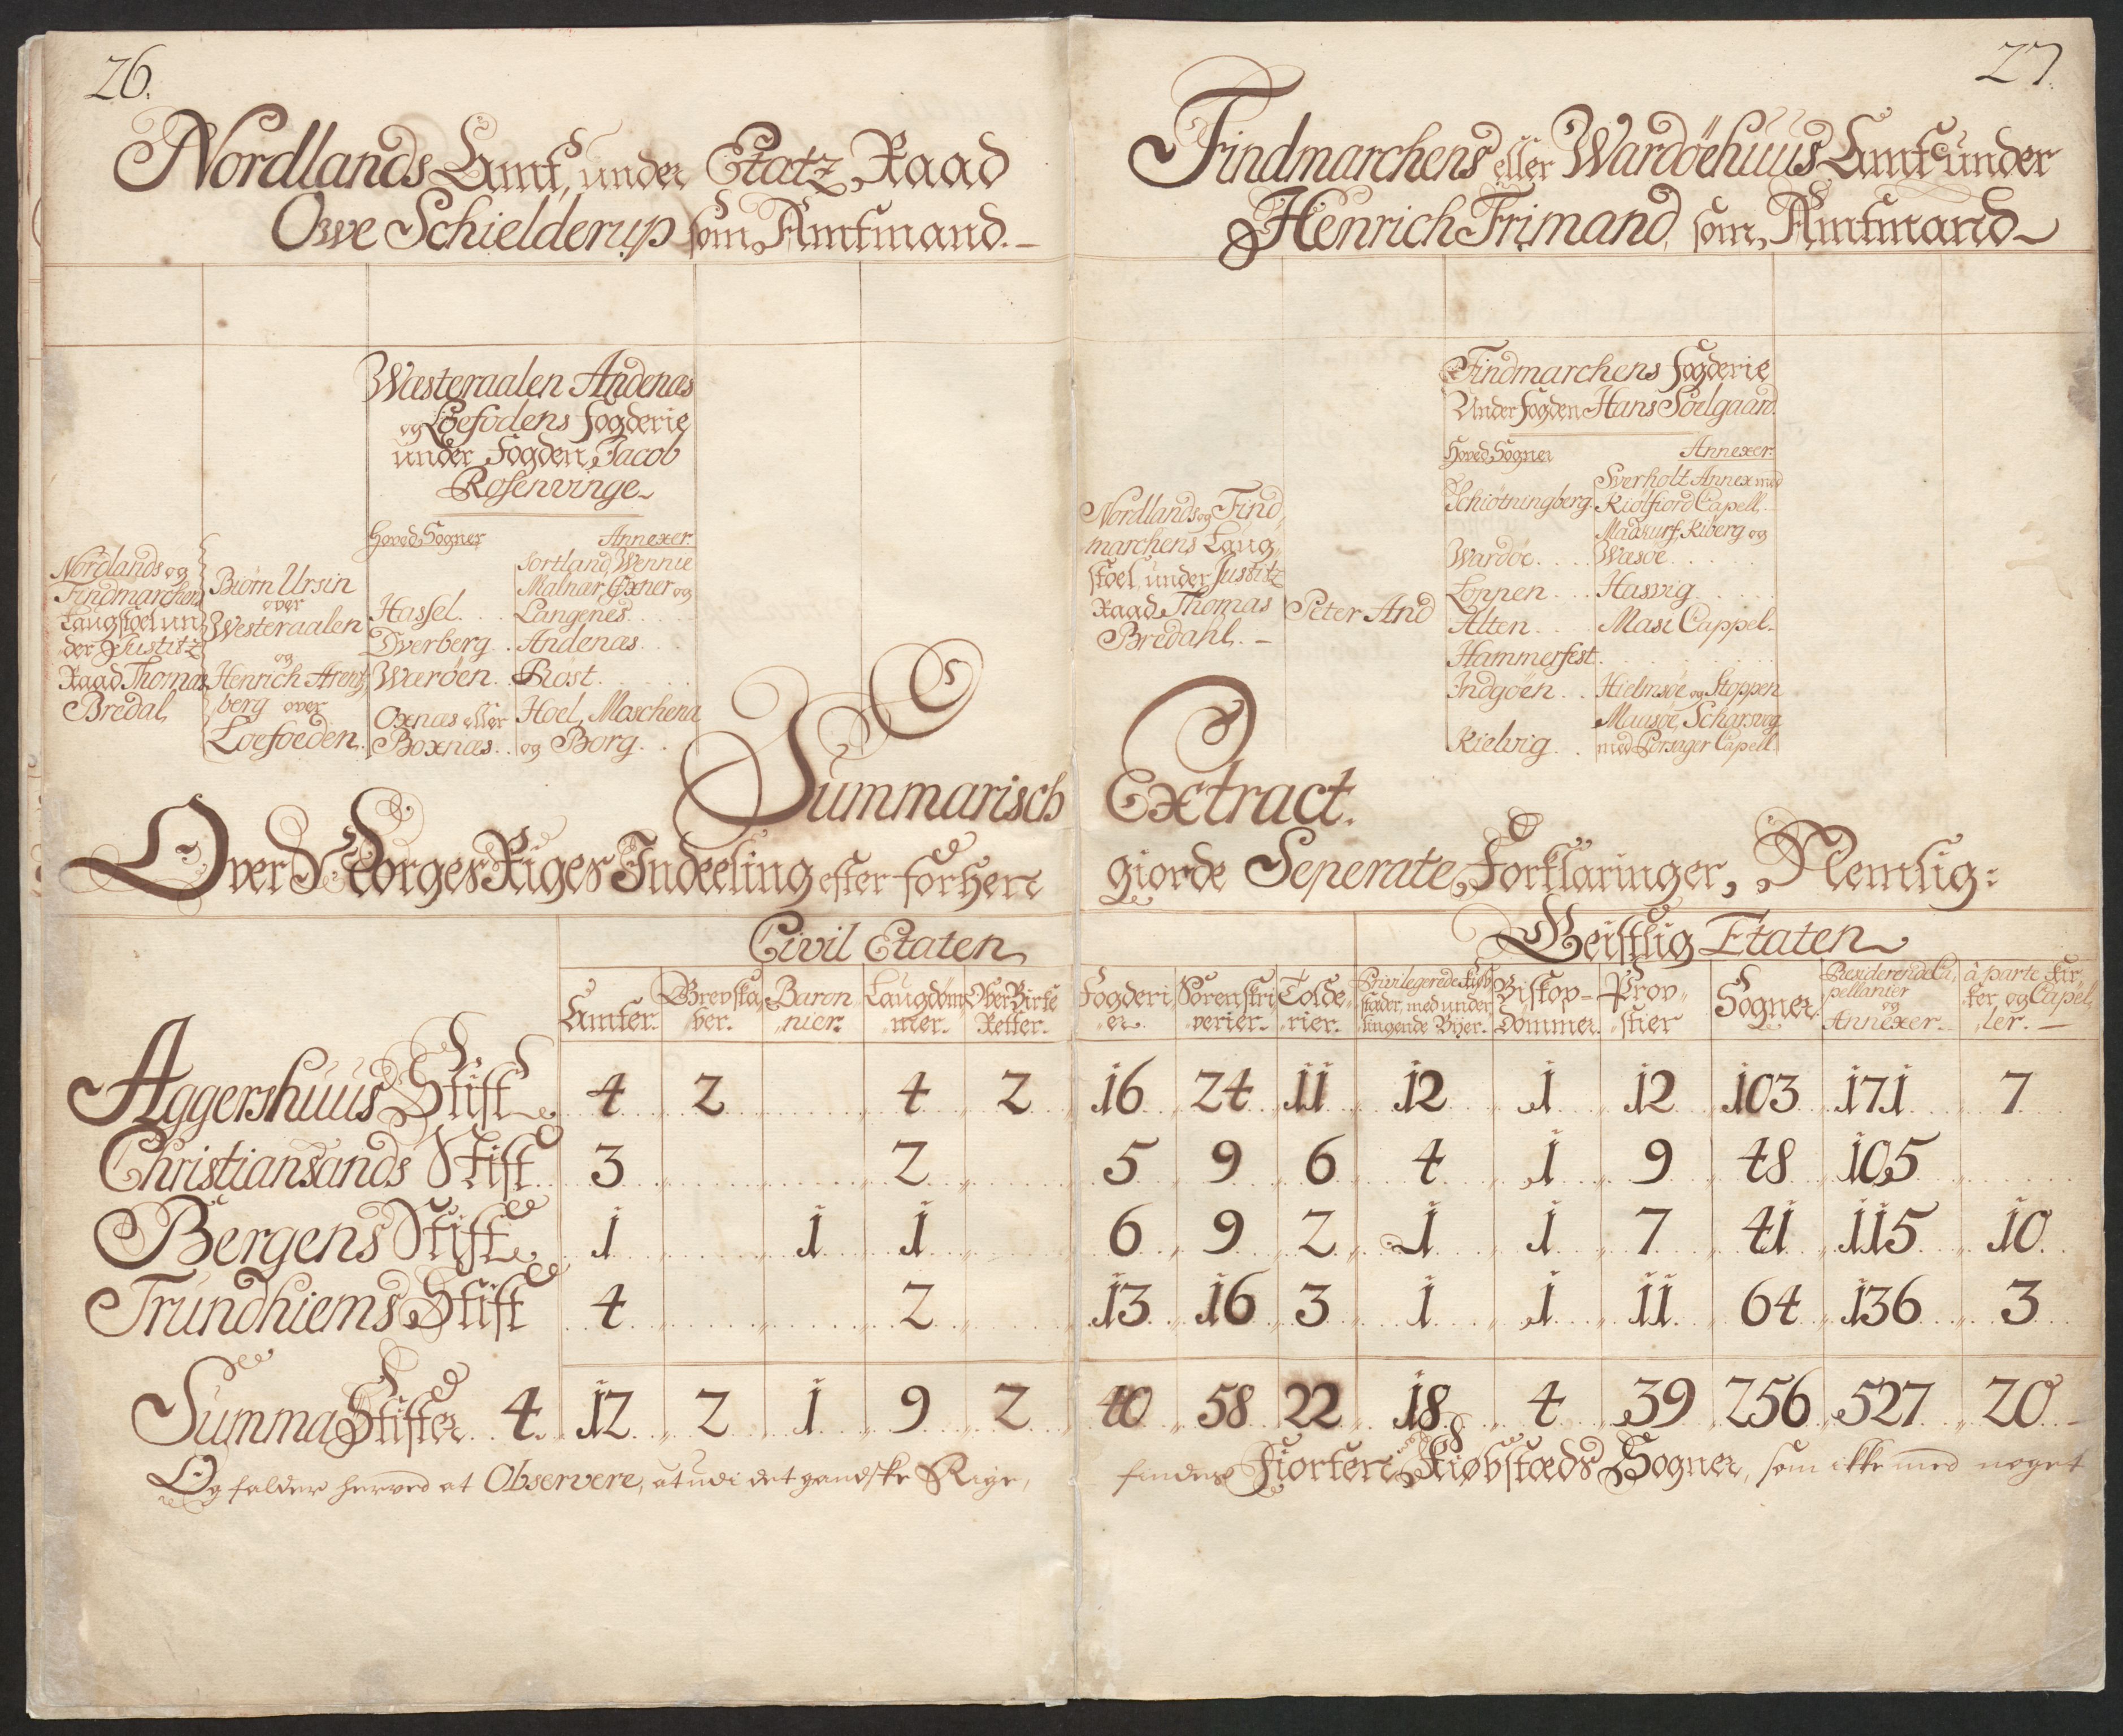 26.
Nordlands Amt, under Etatz Raad
Owe Schielderup som Amtmand.
Nordlands og
Findmarchens
Laugstoel un
der Justitz
Raad Thomas
Bredal,
Biørn Ursin
over
Westeraalen
og
Henrich Arent,
berg over
Loefoeden.
Wæsteraalen Andenæs
og Loefodens Fogderie
under Fogden Jacob
Rosenvinge
Hoved Sogner Annexer.
Sortland, Wennie
Malnær, Øxner og
Hassel... Langenes.
Dverberg.. Andenæs..
Wærøen.. Røst.
Oxnæs eller Hoel, Moschena
Boxnæs.. og Borg..
27.
Findmarchens eller Wardöehuus Amt under
Henrich Trimand, som Amtmand
Nordlands og Find,
marchens Laug,
stoel, under Justitz
Raad Thomas
Bredahl. -
Peter And
Findmarchens Fogderie
Under Fogden Hans Soelgaard.
Hoved Sogner Annexer.
Sverholt Annex med
Schiøtningberg. Kiølfiord Capell.
Madkurf, Kiberg og
Wardöe.... Wæsöe......
Loppen... Hasvig.....
Alten.... Masi Cappel.
Hammerfest.
Indgöen.. Hielmsöe og Stoppen
Mausöe, Scharsvog
Kielvig.. med Porsager Capell.
Summarisch Extract.
Over Norges Riges Indeeling efter forhen giorde Seperate Forklaringer, Nemlig:
Civil Etaten Geistlig Etaten
Amter. Grevska,ver. Baron,nier. Laugdøm,mer. Over Birke Retter. Fogderi,er. Sorenskri,verier. Tolde,rier. Privilegerede Kiøb,stæder, med under,liggende Byer. Biskop-Dømmer. Prov,stier Sogner. Residerende Ca,pellanter og Annexer. à parte Kir,ker, og Capel,ler. -
Aggershuus Stift 4 2 4 2 16 24 11 12 1 12 103 171 7
Christiansands Stift 3 2 5 9 6 4 1 9 48 105
Bergens Stift 1 1 1 6 9 2 1 1 7 41 115 10
Trundhiems Stift 4 2 13 16 3 1 1 11 64 136 3
Summa Stifter 4. 12 2 1 9 2 40 58 22 18 4 39 256 527 20
Og falder herved at Observere, at udi det gandske Rige, findes Fiorten Kiøbstæds Sogner, som ikke med noget